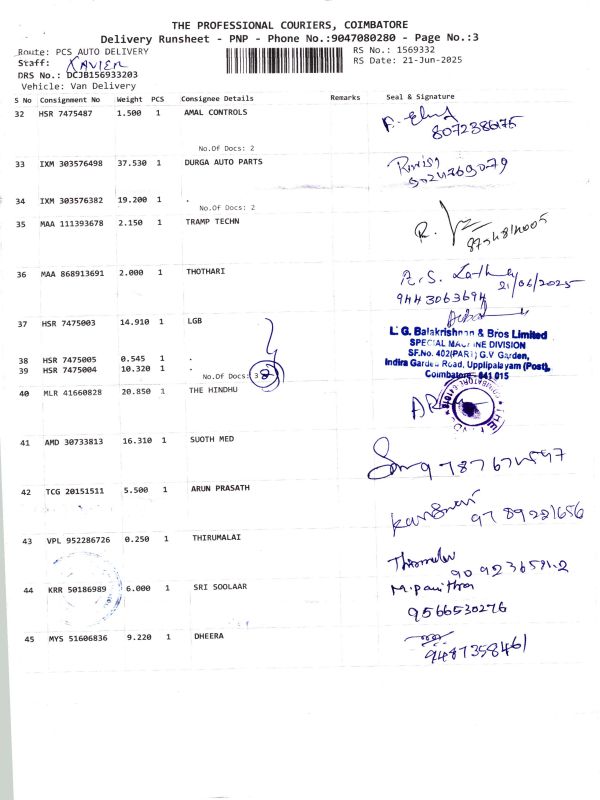 THE PROFESSIONAL COURIERS, COIMBATORE
Delivery Runsheet - PNP - Phone No.:9047080280 - Page No.:3
Route: PCS AUTO DELIVERY
RS No.: 1569332
Staff: XAVIER
RS Date: 21-Jun-2025
DRS No.: DCJB156933203
Vehicle: Van Delivery
S No Consignment No Weight PCS Consignee Details Remarks Seal & Signature
32 HSR 7475487 1.500 1 AMAL CONTROLS
No.Of Docs: 2
33 IXM 303576498 37.530 1 DURGA AUTO PARTS
34 IXM 303576382 19.200 1 .
No.Of Docs: 2
35 MAA 111393678 2.150 1 TRAMP TECHN
R.
36 MAA 868913691 2.000 1 THOTHARI
21/06/2025
9443063694
37 HSR 7475003 14.910 1 LGB
L. G. Balakrishnan & Bros Limited
SPECIAL MACHINE DIVISION
SF.No. 402(PART) G.V Garden,
Indira Garden Road, Upplipalayam (Post),
Coimbatore - 641 015
38 HSR 7475005 0.545 1 .
39 HSR 7475004 10.320 1 .
No.Of Docs: 3
40 MLR 41660828 20.850 1 THE HINDHU
41 AMD 30733813 16.310 1 SUOTH MED
42 TCG 20151511 5.500 1 ARUN PRASATH
9789221656
43 VPL 952286726 0.250 1 THIRUMALAI
44 KRR 50186989 6.000 1 SRI SOOLAAR
M.Pavithra
9566530276
45 MYS 51606836 9.220 1 DHEERA
9487358461